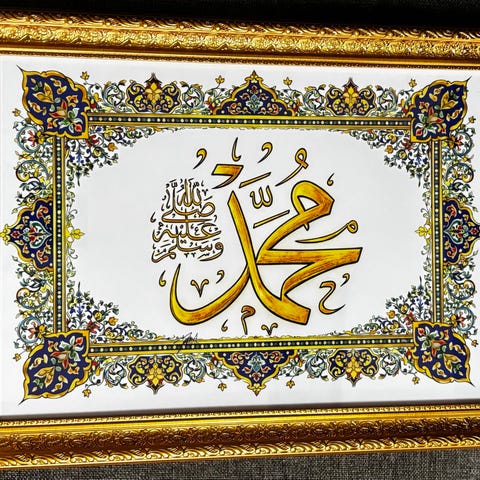 محمد
صلى الله
عليه
وسلم